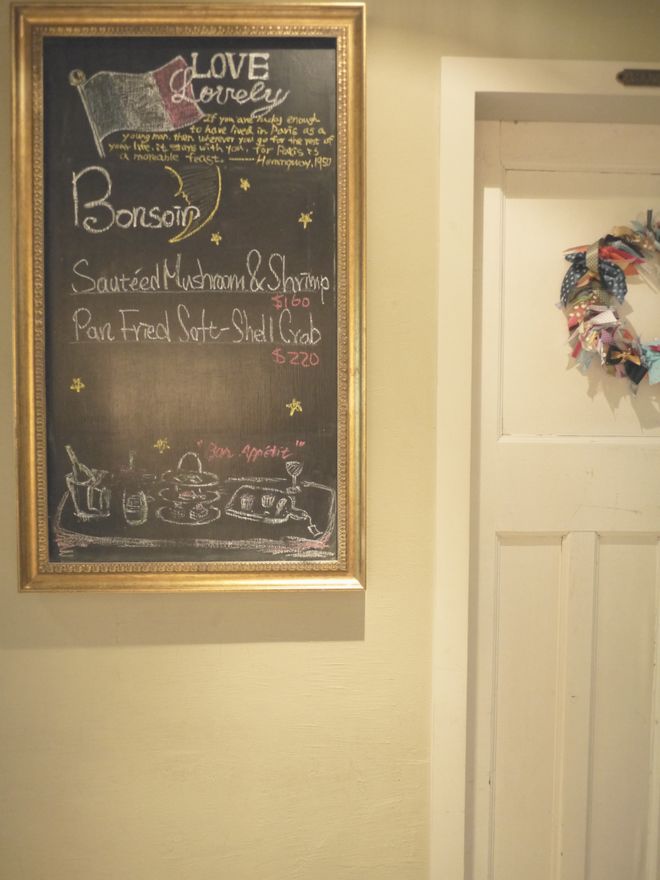 LOVE
Lovely
If you are lucky enough
to have lived in Paris as a
young man, then wherever you go for the rest of
your life, it stays with you, for Paris is
a moreable feast. —— Hemingway, 1950
Bonsoir
Sautéed Mushroom & Shrimp
$160
Pan Fried Soft-Shell Crab
$220
"Bon Appétit"